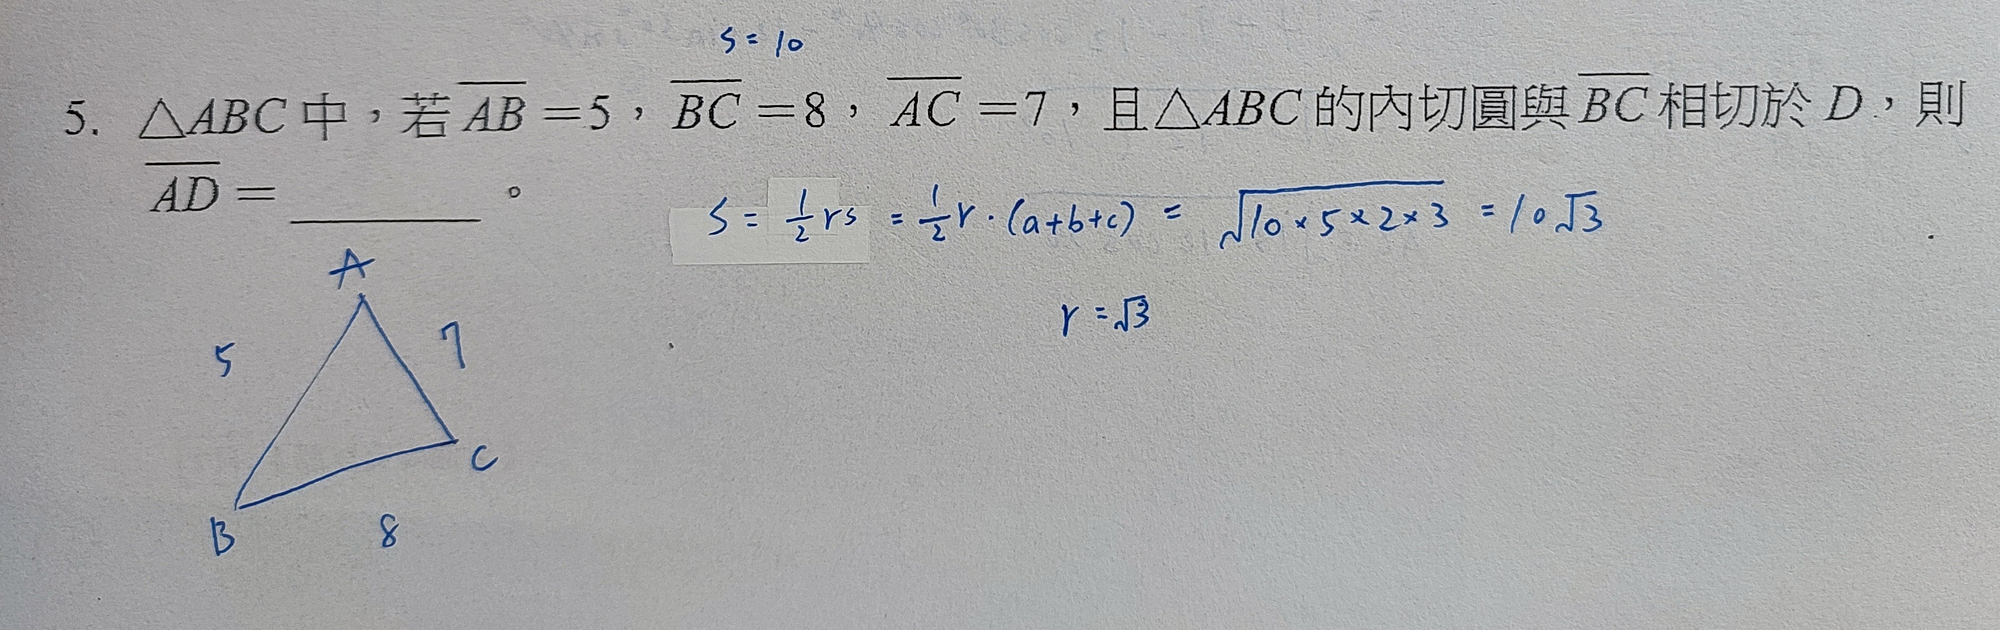 s = 10
5. △ABC 中，若 AB = 5，BC = 8，AC = 7，且△ABC 的內切圓與 BC 相切於 D，則
AD = ＿＿＿＿＿。
S = 1/2 rs = 1/2 r · (a+b+c) = √(10×5×2×3) = 10√3
r = √3
A
5
7
C
B
8